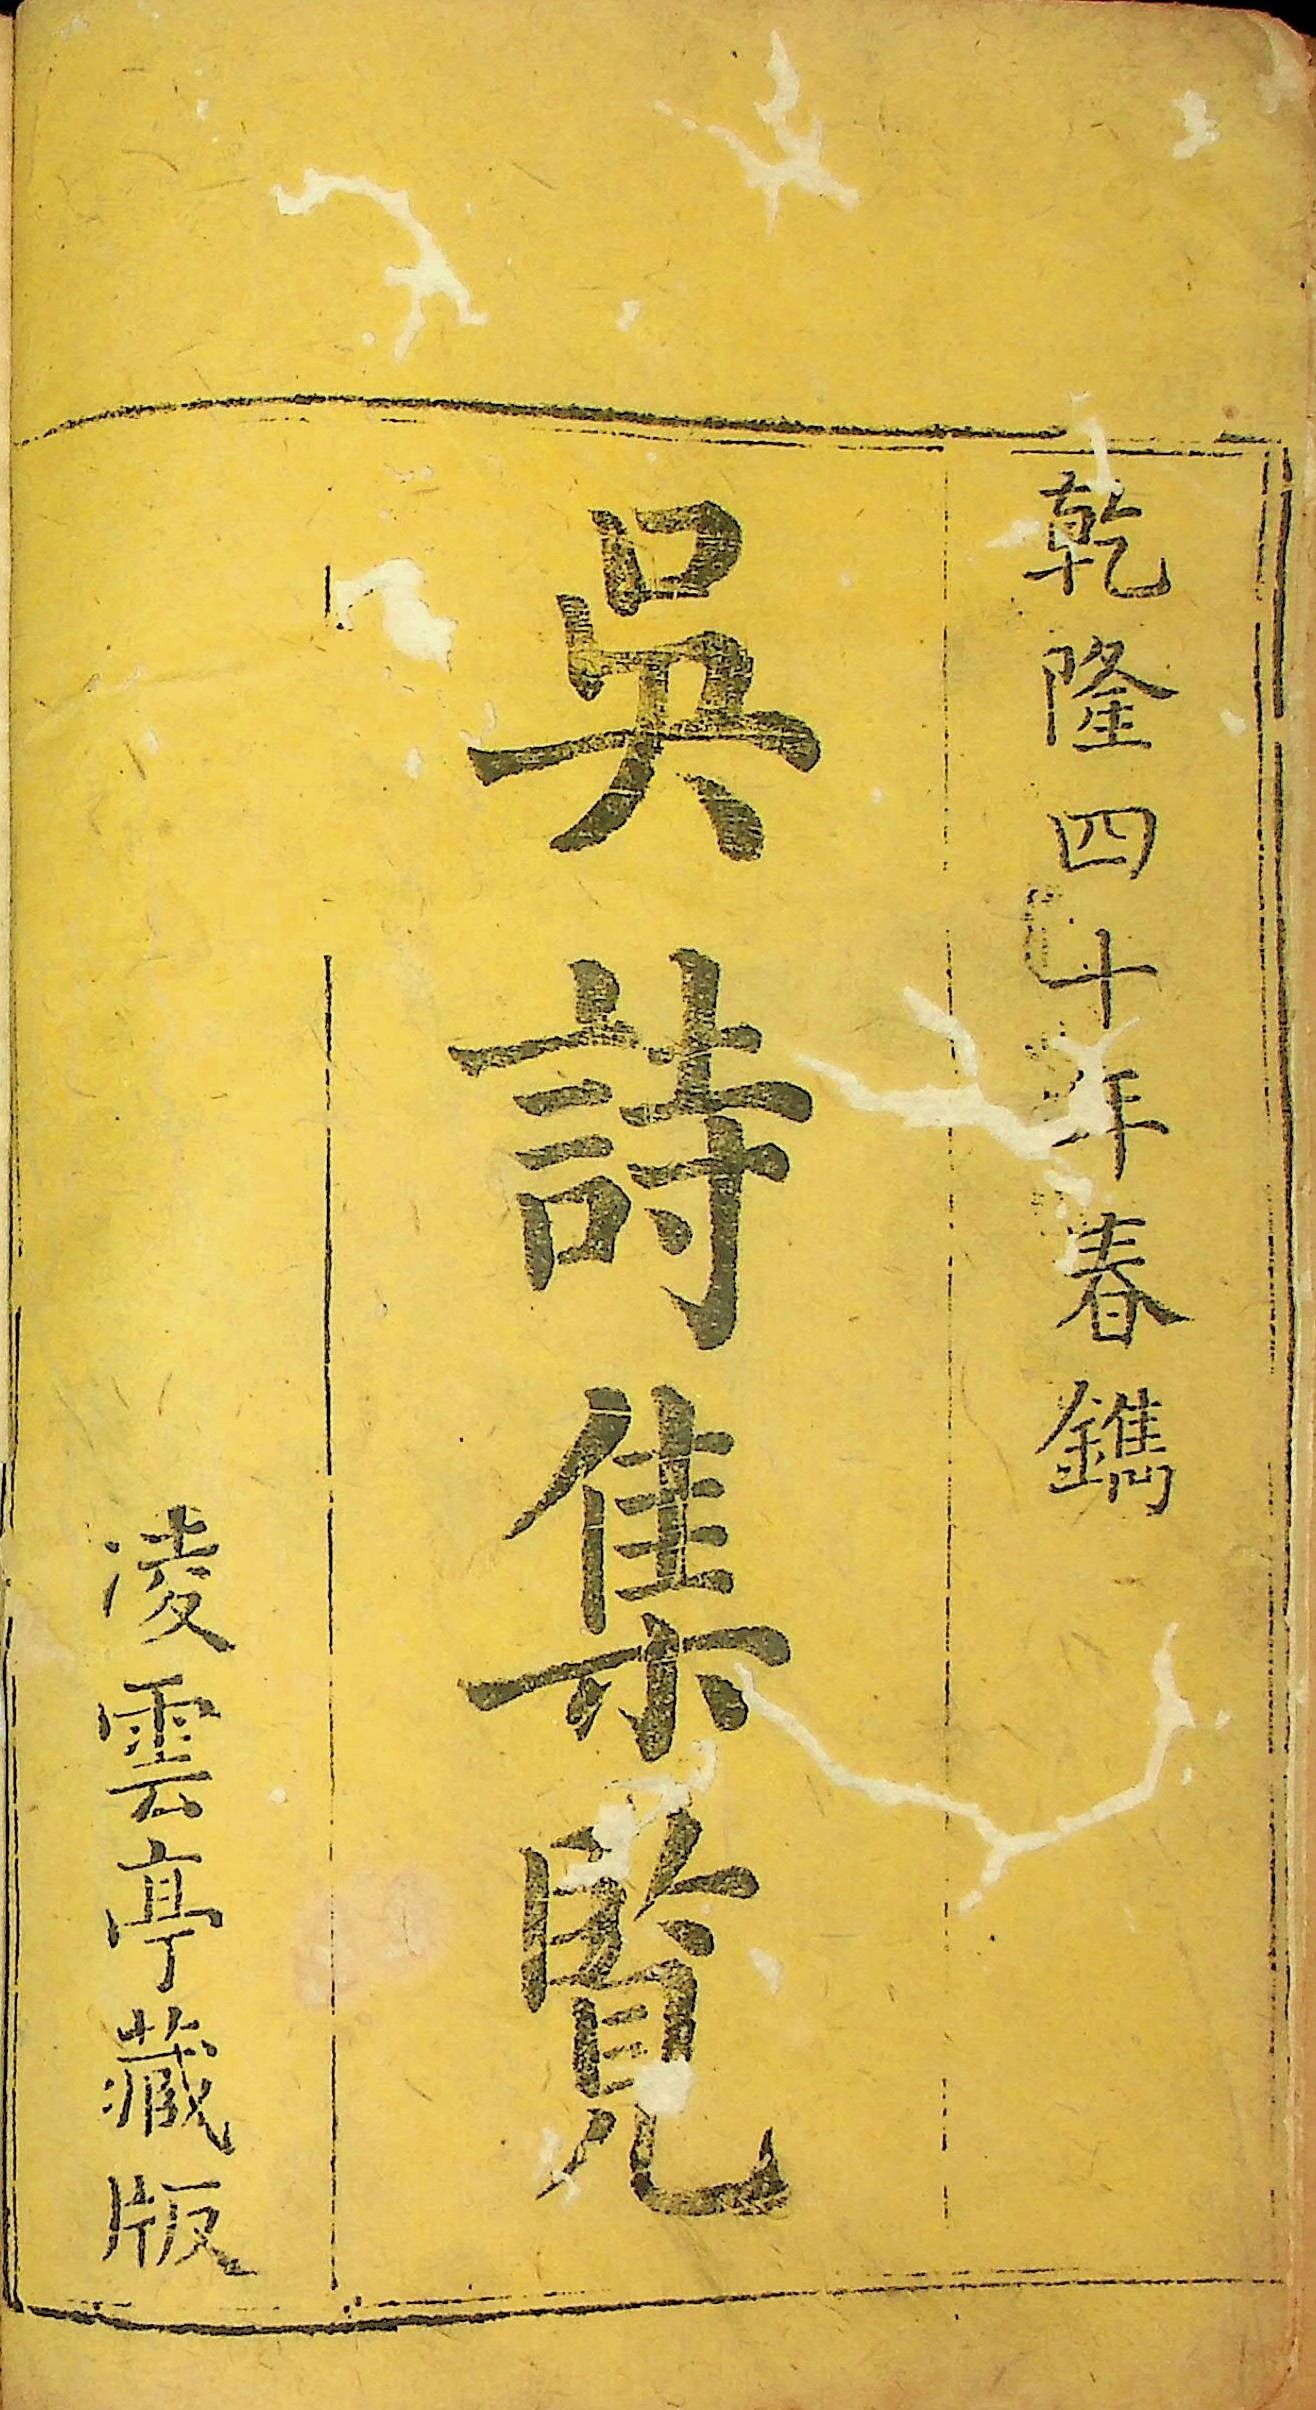 乾隆四十年春鐫
吳詩集覽
凌雲亭藏版